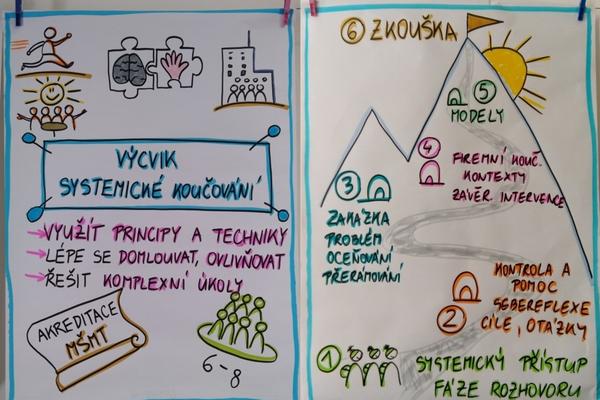 VÝCVIK
SYSTEMICKÉ KOUČOVÁNÍ
→VYUŽÍT PRINCIPY A TECHNIKY
→LÉPE SE DOMLOUVAT, OVLIVŇOVAT
→ŘEŠIT KOMPLEXNÍ ÚKOLY
AKREDITACE
MŠMT
6-8
6 ZKOUŠKA
5
MODELY
4
FIREMNÍ KOUČ.
KONTEXTY
ZÁVĚR. INTERVENCE
3
ZAKÁZKA
PROBLÉM
OCEŇOVÁNÍ
PŘERÁMOVÁNÍ
KONTROLA A
POMOC
SEBEREFLEXE
2 CÍLE, OTÁZKY
1 SYSTEMICKÝ PŘÍSTUP
FÁZE ROZHOVORU